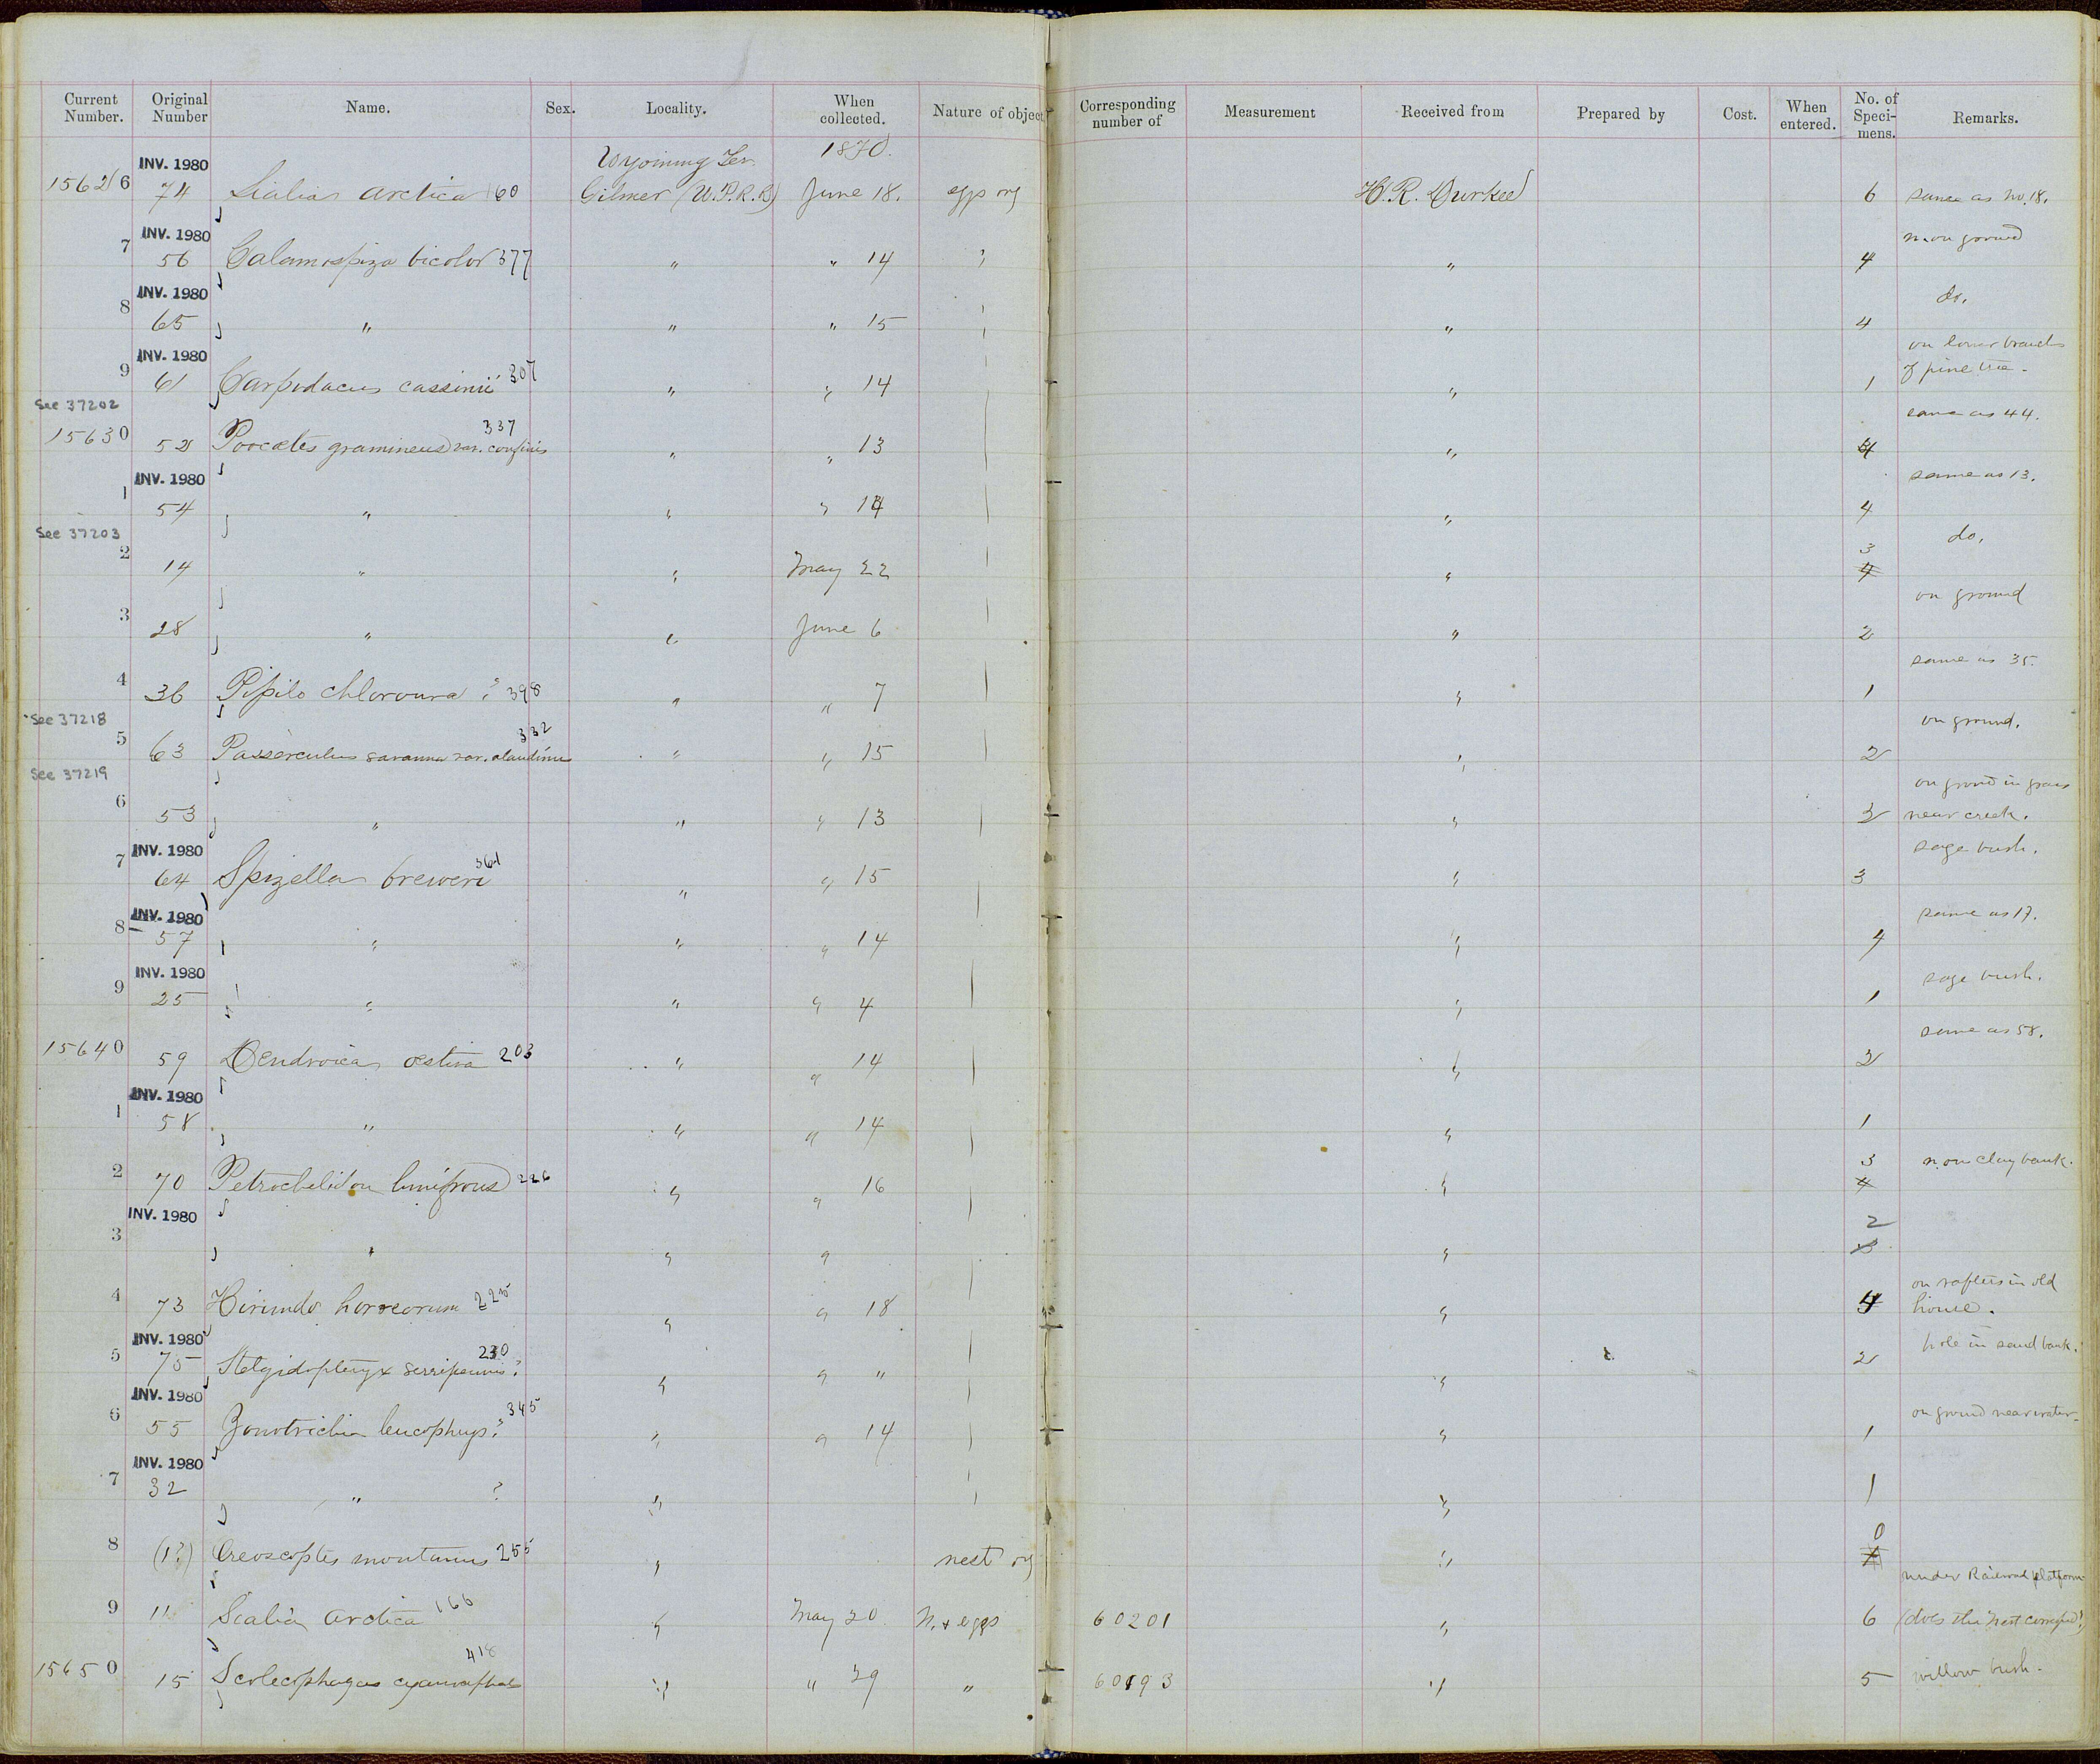 Current Number. Original Number Name. Sex. Locality. When collected. Nature of object Corresponding number of Measurement Received from Prepared by Cost. When entered. No. of Specimens. Remarks.
Wyoming Ter. 1870.
INV. 1980
15626 74 Sialia arctica 160 Gilmer (U.P.R.R) June 18. eggs H. R. Durkee 6 same as no. 18.
INV. 1980 on ground
7 56 Calamospiza bicolor 377 " " 14 " 4
INV. 1980 do.
8 65 " " " 15 " 4
INV. 1980 on lower branch
9 61 Carpodacus cassinii 307 " " 14 " 1 of pine tree.
See 37202 same as 44.
15630 52 Poocætes gramineus var. confinis 337 " " 13 " 4
INV. 1980 same as 13.
1 54 " " " 14 " 4
See 37203 do.
2 14 " " May 22 " 3 4
on ground
3 28 " " June 6 " 2
same as 35.
4 36 Pipilo chlorura ? 398 " " 7 " 1
See 37218 on ground.
5 63 Passerculus savanna var. alaudinus 332 " " 15 " 2
See 37219 on ground in grass
6 53 " " " 13 " 3 near creek.
INV. 1980 sage bush.
7 64 Spizella breweri 361 " " 15 " 3
INV. 1980 same as 17.
8 57 " " " 14 " 4
INV. 1980 sage bush.
9 25 " " " 4 " 1
same as 58.
15640 59 Dendroica æstiva 203 " " 14 " 2
INV. 1980
1 58 " " " 14 " 1
2 70 Petrochelidon lunifrons 226 " " 16 " 3 4 n. on clay bank.
INV. 1980
3 " " " " 2 3
on rafters in old
4 73 Hirundo horreorum 225 " " 18 " 4 house.
INV. 1980 hole in sand bank.
5 75 Stelgidopteryx serripennis ? 230 " " " " 2
INV. 1980 on ground near water
6 55 Zonotrichia leucophrys ? 345 " " 14 " 1
INV. 1980
7 32 " ? " " 1
8 (1?) Oreoscoptes montanus 255 " nest " 0 1
under Railroad platform
9 11 Sialia arctica 160 " May 20 N. + eggs 60201 " 6 (does the nest correspond?)
15650 15 Scolecophagus cyanocephalus 418 " " 29 " 60193 " 5 willow bush.